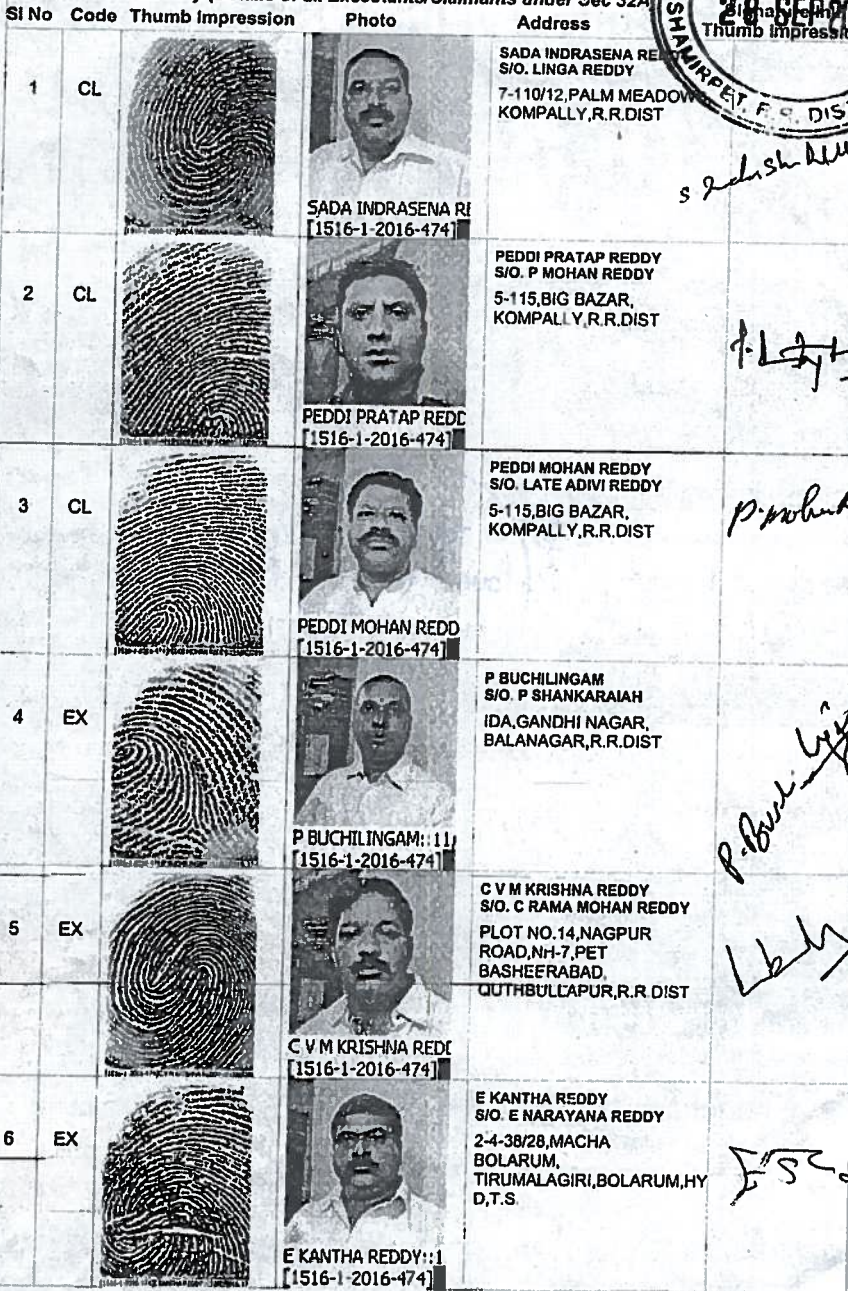 Executants/Claimants under Sec 32A
Sl No Code Thumb Impression Photo Address Thumb Impress
SHAMIRPET, R.R. DIS
1 CL
SADA INDRASENA RE
[1516-1-2016-474]
SADA INDRASENA RED
S/O. LINGA REDDY
7-110/12,PALM MEADOW
KOMPALLY,R.R.DIST
2 CL
PEDDI PRATAP REDD
[1516-1-2016-474]
PEDDI PRATAP REDDY
S/O. P MOHAN REDDY
5-115,BIG BAZAR,
KOMPALLY,R.R.DIST
3 CL
PEDDI MOHAN REDD
[1516-1-2016-474]
PEDDI MOHAN REDDY
S/O. LATE ADIVI REDDY
5-115,BIG BAZAR,
KOMPALLY,R.R.DIST
4 EX
P BUCHILINGAM::11
[1516-1-2016-474]
P BUCHILINGAM
S/O. P SHANKARAIAH
IDA,GANDHI NAGAR,
BALANAGAR,R.R.DIST
5 EX
C V M KRISHNA REDD
[1516-1-2016-474]
C V M KRISHNA REDDY
S/O. C RAMA MOHAN REDDY
PLOT NO.14,NAGPUR
ROAD,NH-7,PET
BASHEERABAD,
QUTHBULLAPUR,R.R.DIST
6 EX
E KANTHA REDDY::1
[1516-1-2016-474]
E KANTHA REDDY
S/O. E NARAYANA REDDY
2-4-38/28,MACHA
BOLARUM,
TIRUMALAGIRI,BOLARUM,HY
D,T.S.